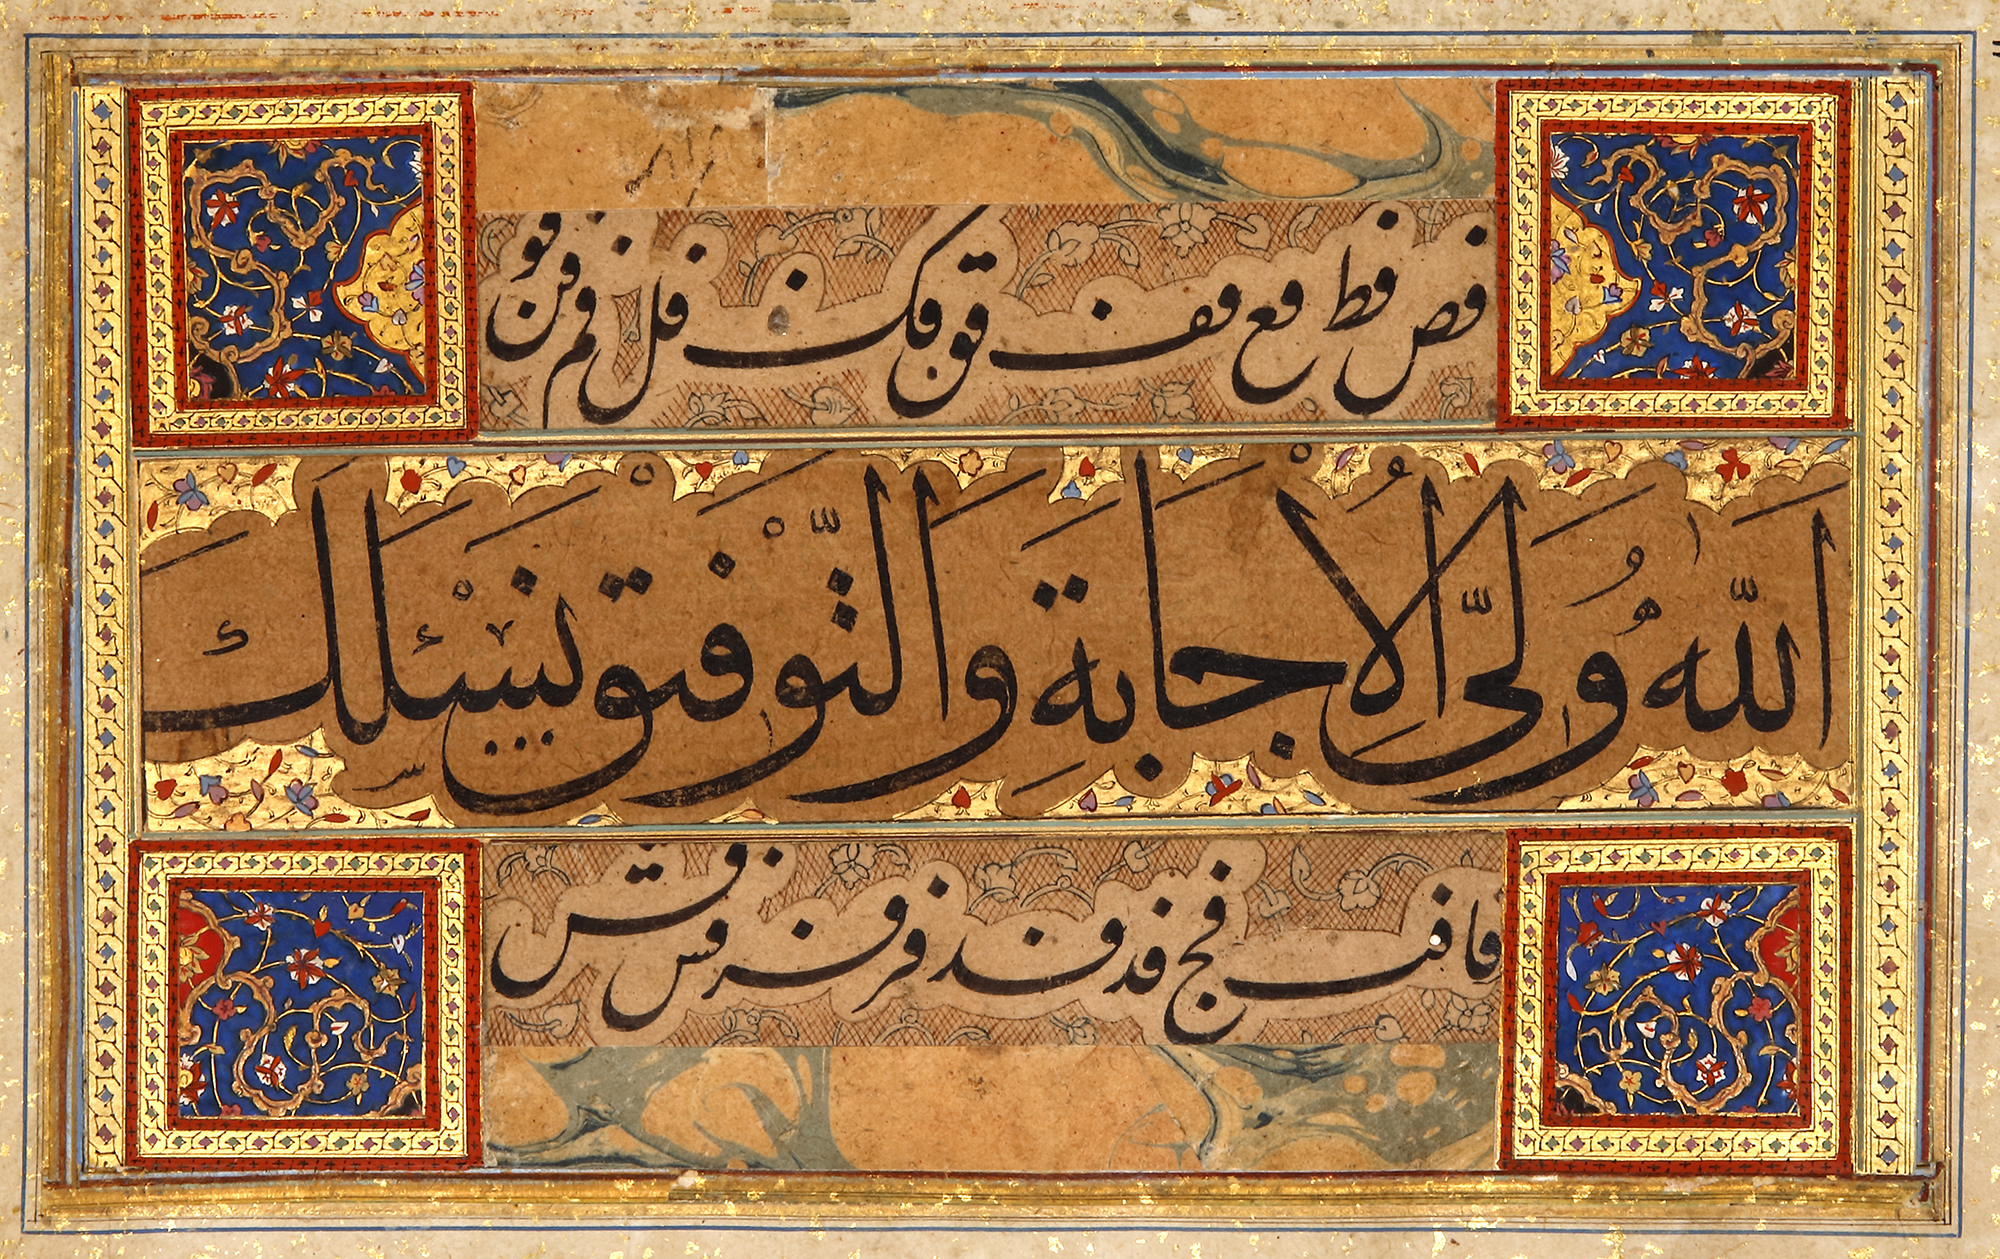 فص فط فع فف فق فک فل فم فن فو
اَللّٰهُ وَلیّ الاِجَابَةِ وَالتَّوْفیق نَسْئَلکَ
فا فب فج فد فد فر فر فس فس